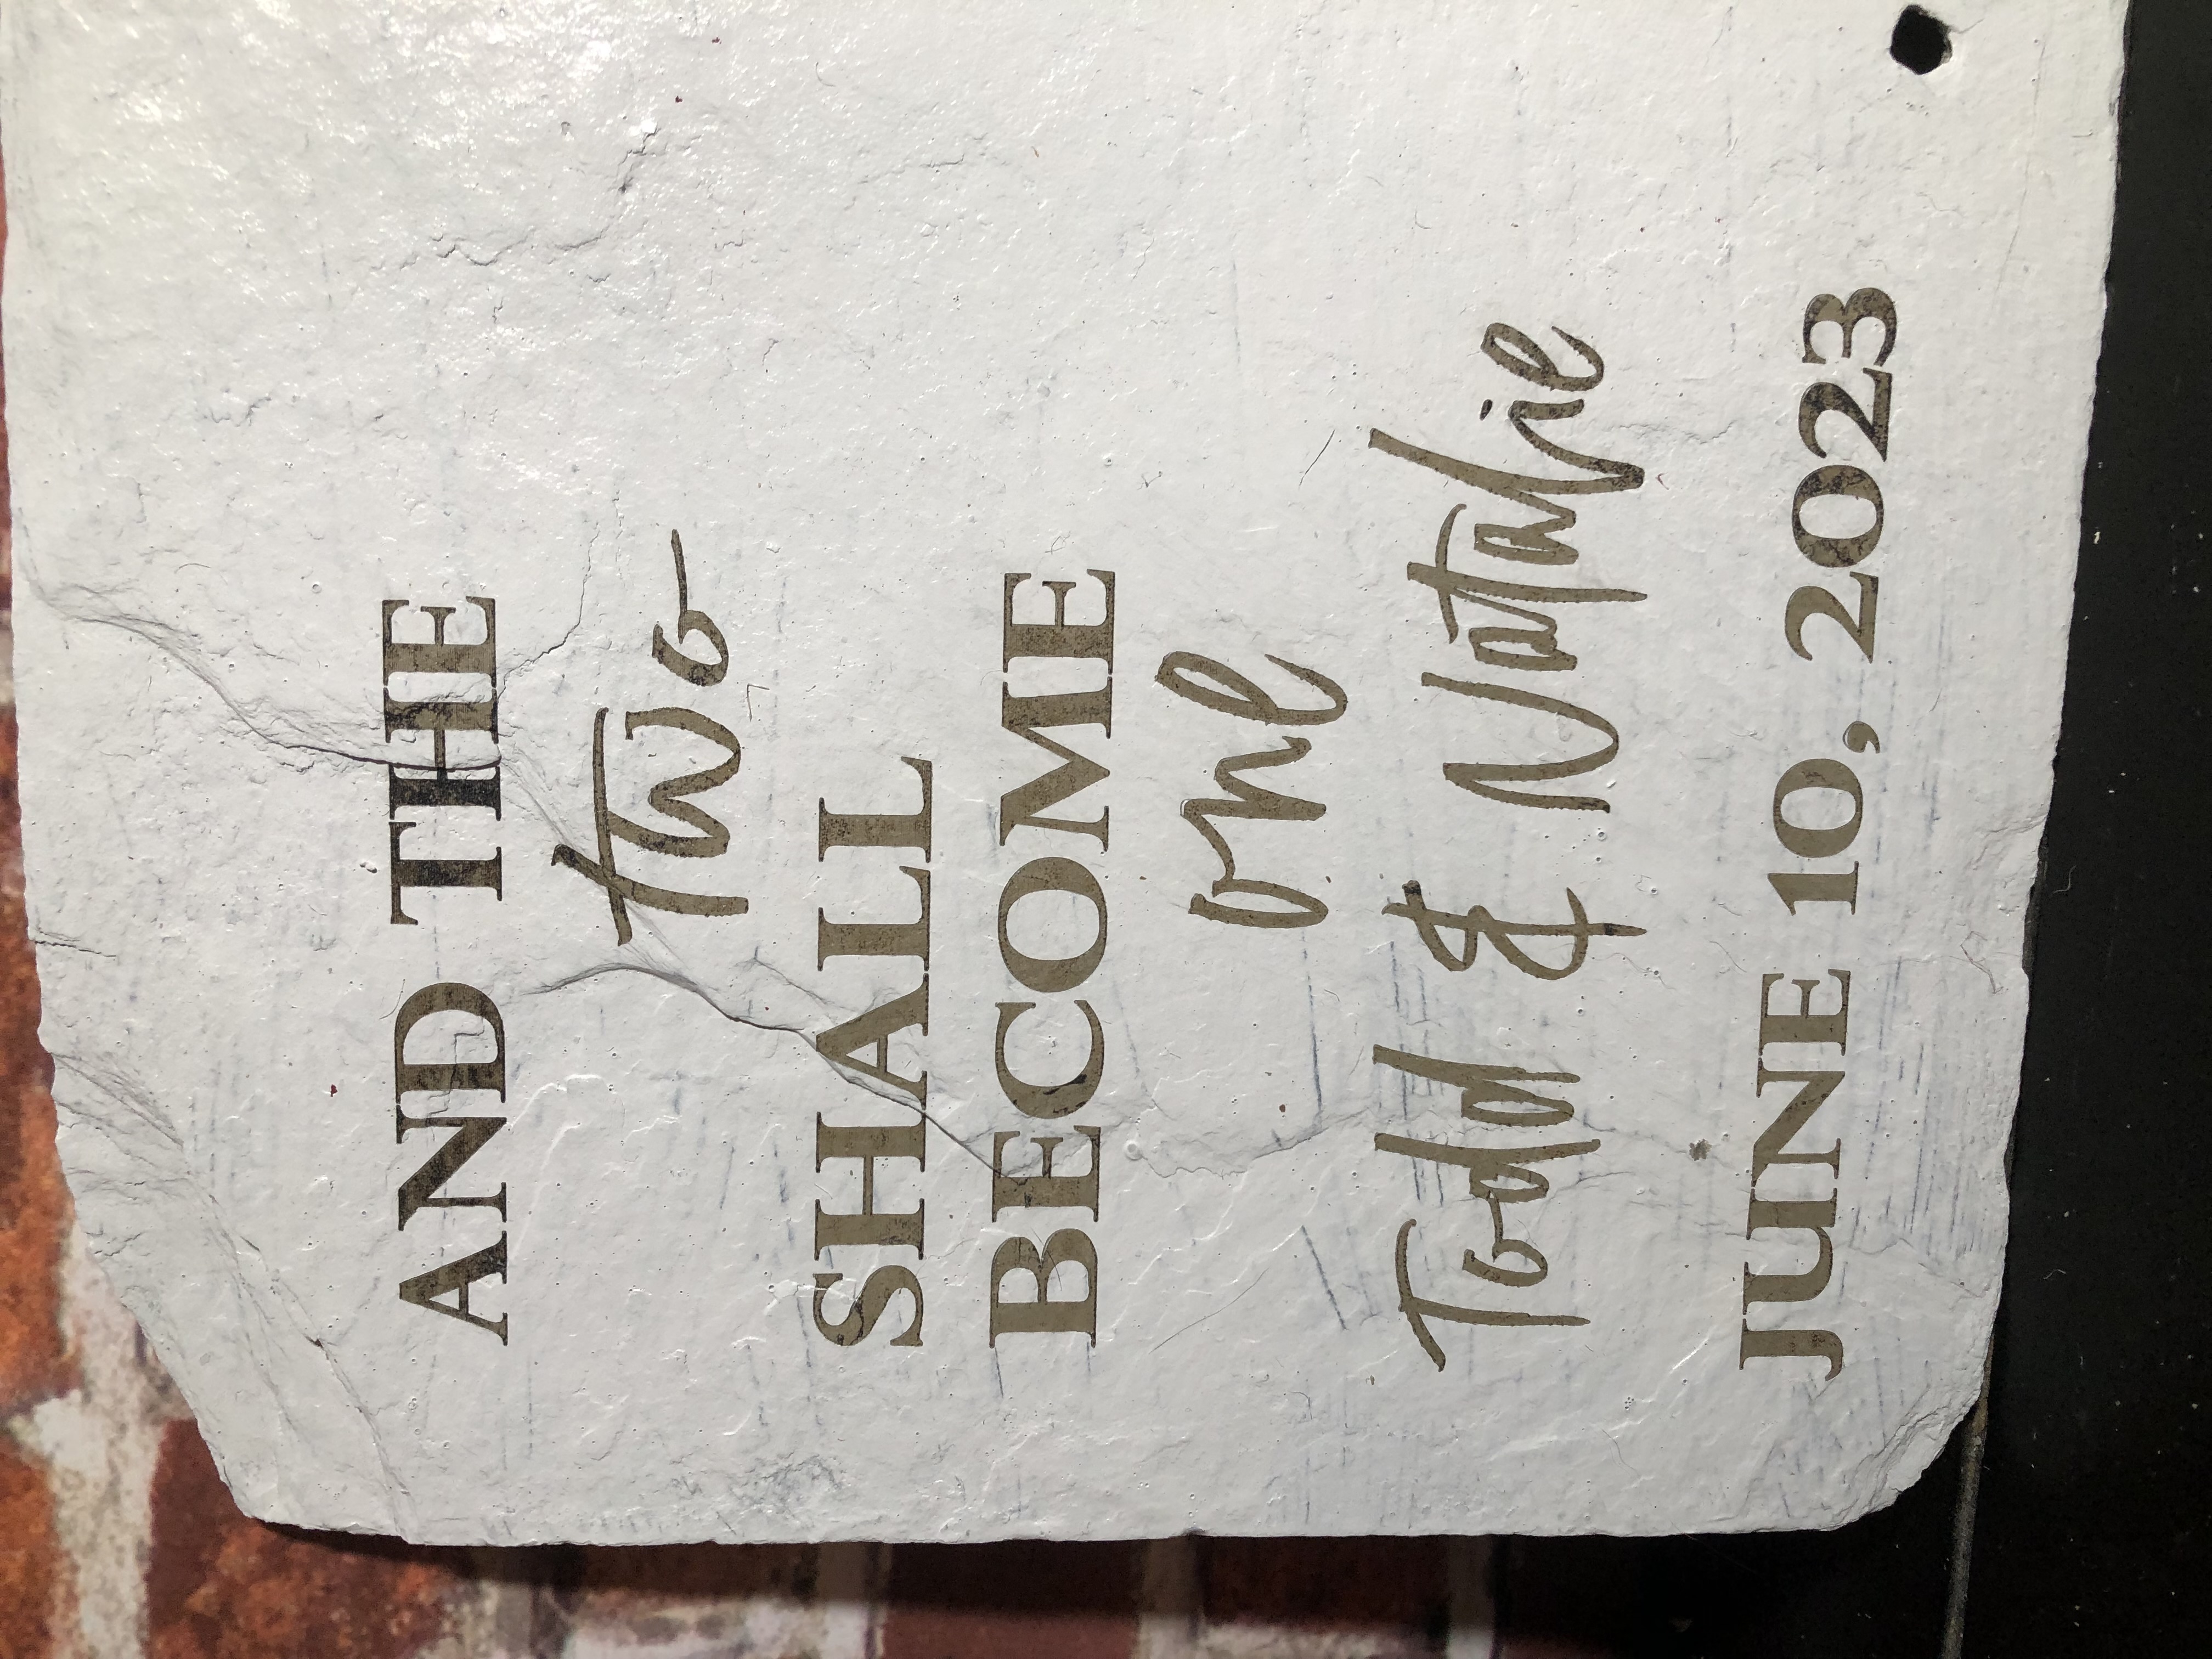 AND THE
two
SHALL
BECOME
one
Todd & Natalie
JUNE 10, 2023